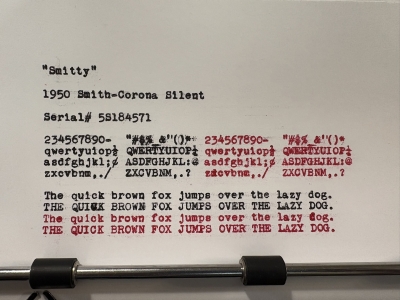 "Smitty"
1950 Smith-Corona Silent
Serial# 5S184571
234567890- "#$%_&'()* 234567890- "#$%_&'()*
qwertyuiop½ QWERTYUIOP¼ qwertyuiop½ QWERTYUIOP¼
asdfghjkl;¢ ASDFGHJKL:@ asdfghjkl;¢ ASDFGHJKL:@
zxcvbnm,./ ZXCVBNM,.? zxcvbnm,./ ZXCVBNM,.?
The quick brown fox jumps over the lazy dog.
THE QUICK BROWN FOX JUMPS OVER THE LAZY DOG.
The quick brown fox jumps over the lazy dog.
THE QUICK BROWN FOX JUMPS OVER THE LAZY DOG.